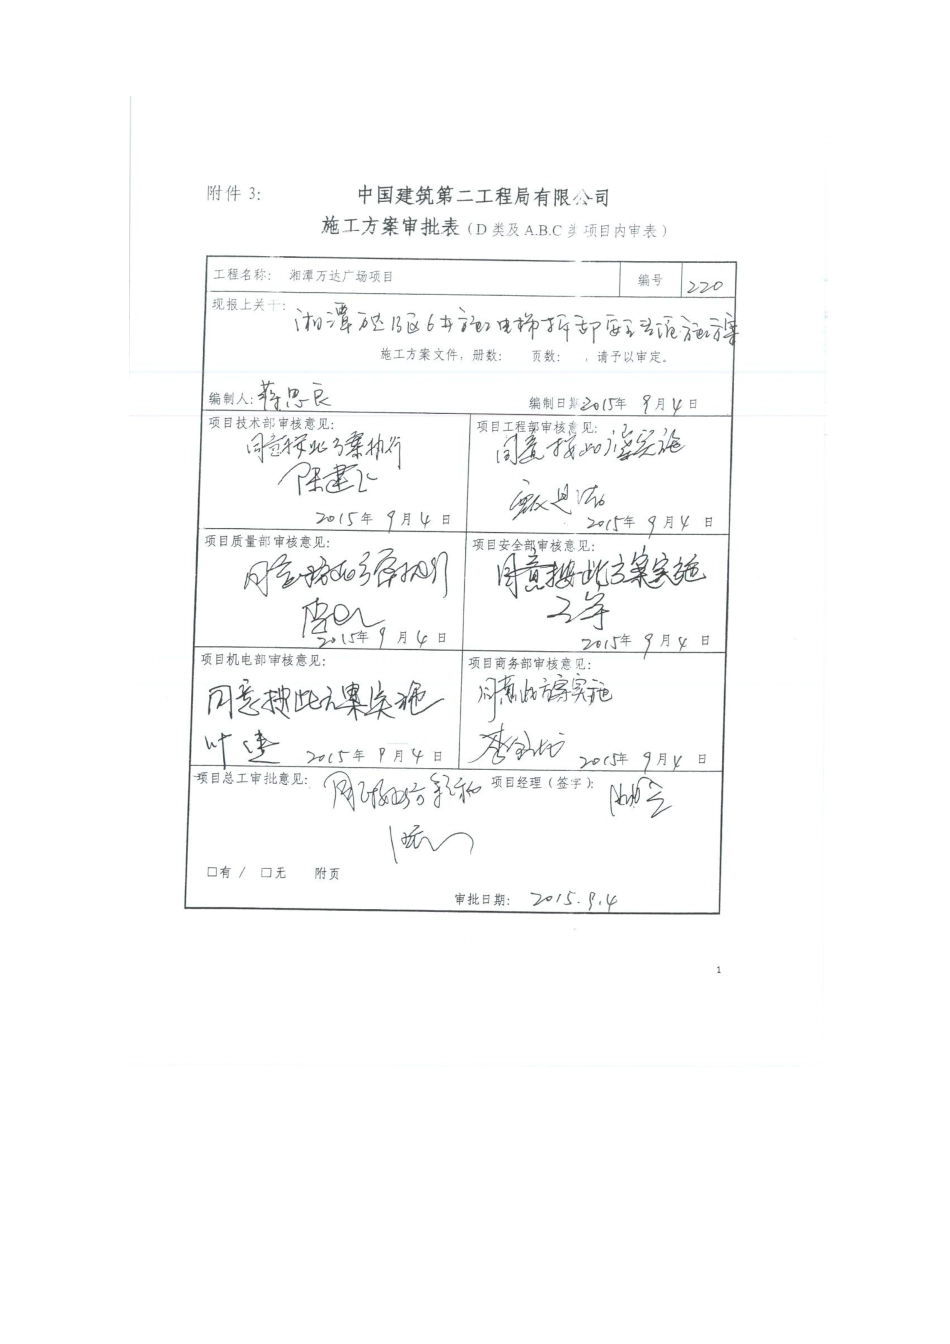 附件 3: 中国建筑第二工程局有限公司
施工方案审批表（D 类及 A.B.C 类 项目内审表）
工程名称: 湘潭万达广场项目 编号 220
现报上关于:
湘潭万达B区6#施工电梯拆卸安全 施工方案
施工方案文件，册数: 页数: ，请予以审定。
编制人: 蒋思良 编制日期 2015年 9月4日
项目技术部审核意见: 项目工程部审核意见:
同意按此方案执行 同意按此方案实施
陈建飞
2015年 9月4日 2015年 9月4日
项目质量部审核意见: 项目安全部审核意见:
同意按此方案执行 同意按此方案实施
2015年 9月4日 2015年 9月4日
项目机电部审核意见: 项目商务部审核意见:
同意按此方案实施 同意此方案实施
叶建 2015年 9月4日 2015年 9月4日
项目总工审批意见: 项目经理（签字）:
□有 / □无 附页
审批日期: 2015.9.4
1